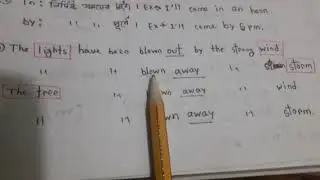 In : নির্দিষ্ট সময়ের মধ্যে । Ex : I'll come in an hour.
by : " " পূর্বে । Ex : I'll come by 6 pm.
The lights have been blown out by the strong wind
" " blown away " storm
The tree " " away " wind
" " away " storm.